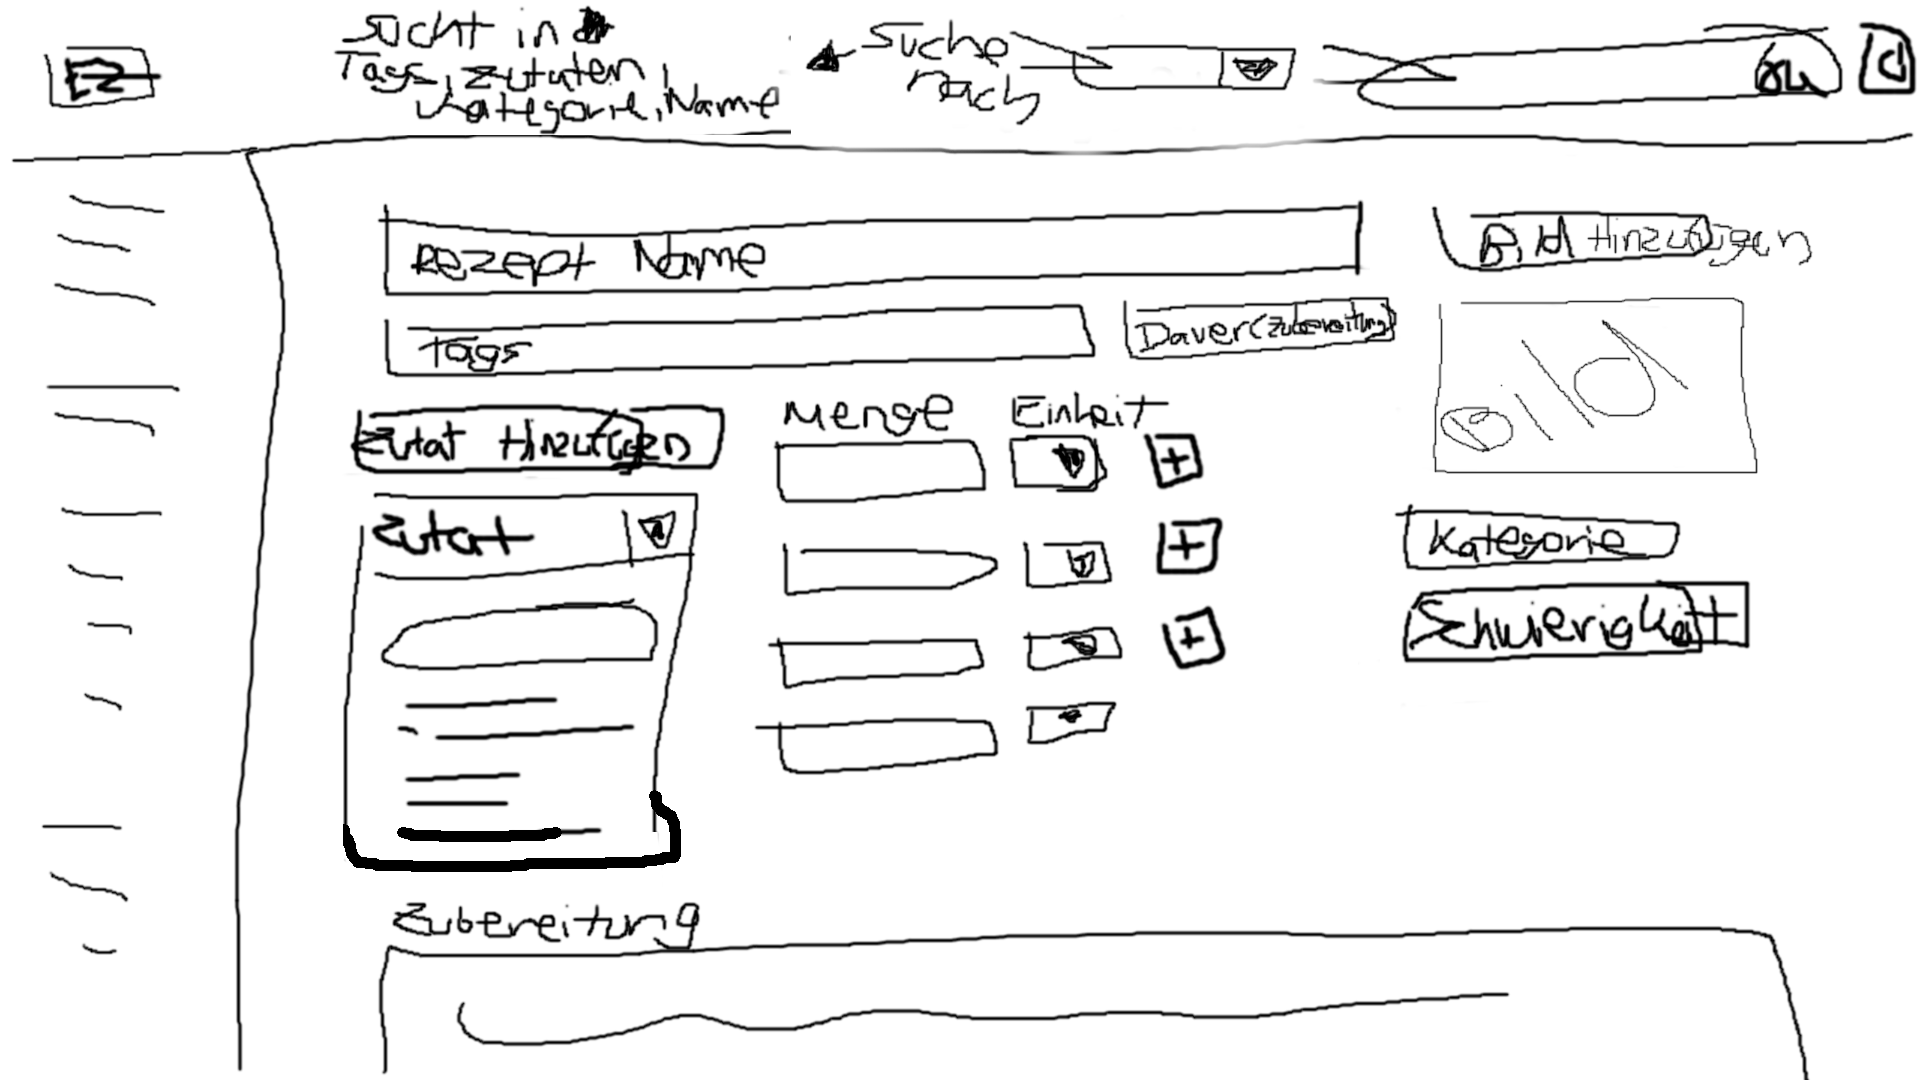 EZ
Sucht in
Tags, Zutaten
Kategorie, Name
Suche
nach
Rezept Name
Bild Hinzufügen
Tags
Dauer (Zubereitung)
Bild
Zutat Hinzufügen
Menge
Einheit
+
Zutat
Kategorie
+
Schwierigkeit
+
Zubereitung